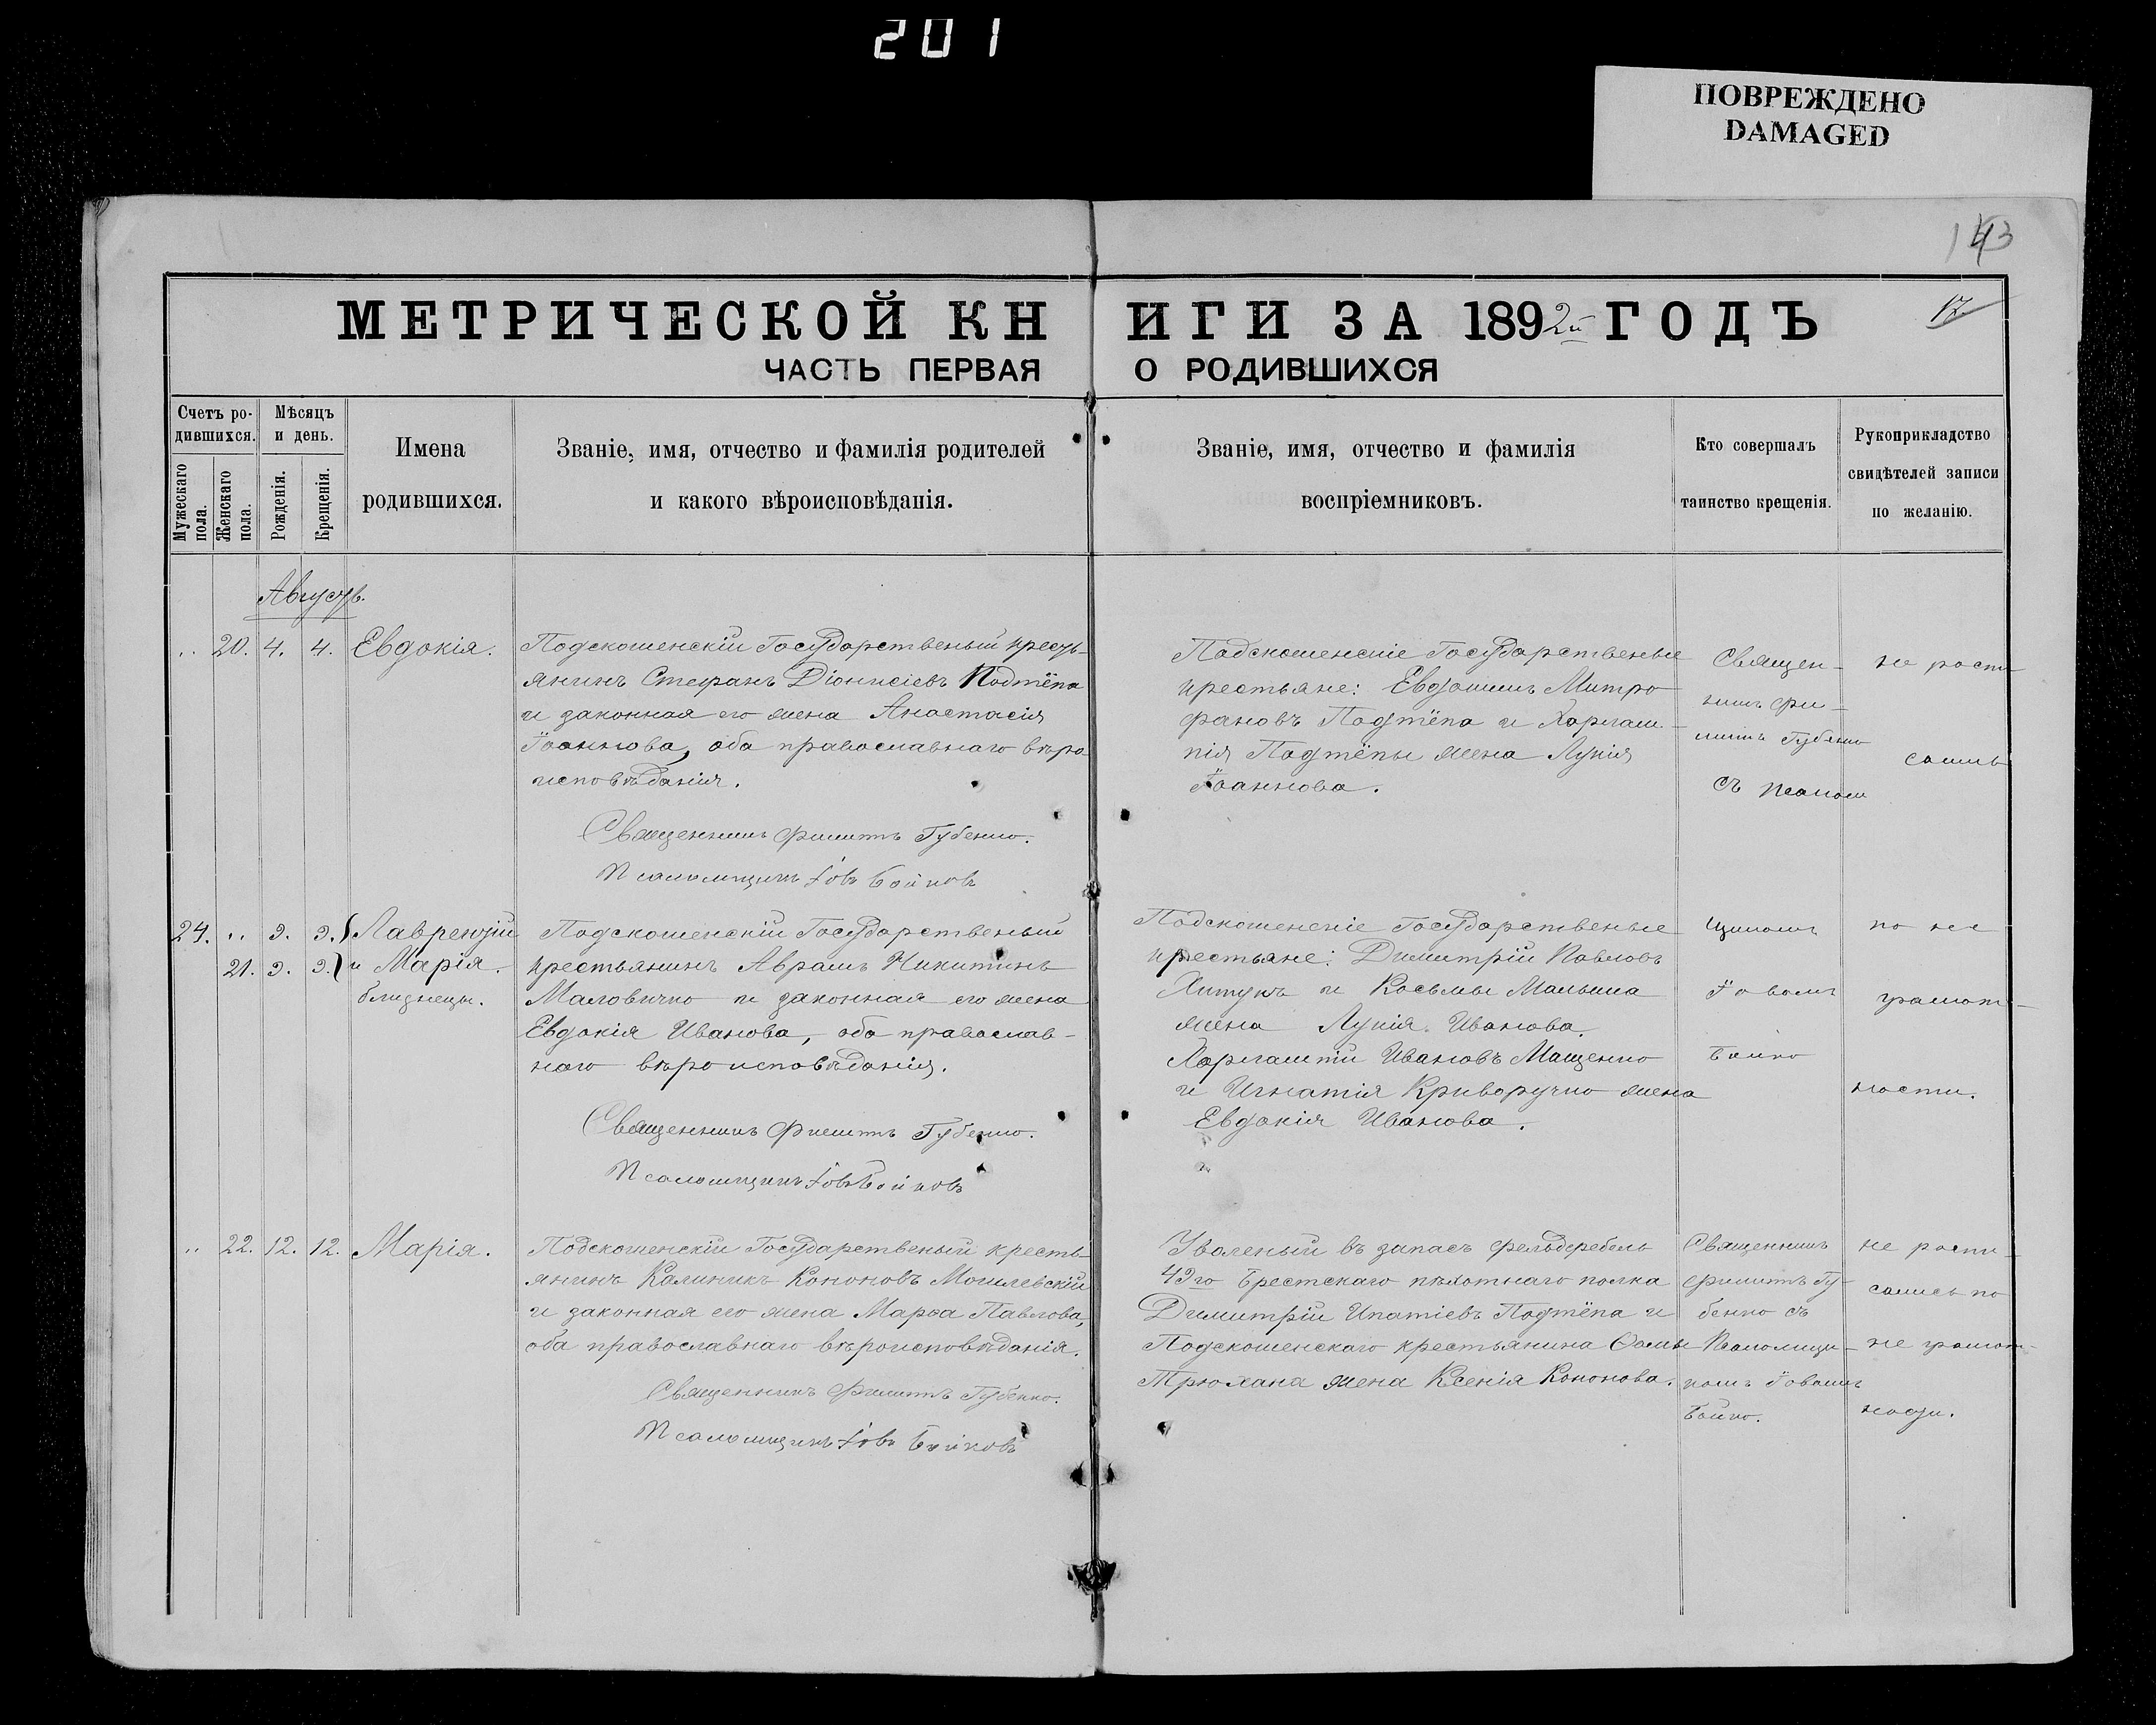 201
ПОВРЕЖДЕНО
DAMAGED
143
17
МЕТРИЧЕСКОЙ КНИГИ ЗА 1892й ГОДЪ
ЧАСТЬ ПЕРВАЯ О РОДИВШИХСЯ
Счетъ родившихся.
Мужескаго пола.
Женскаго пола.
Мѣсяцъ и день.
Рожденія.
Крещенія.
Имена
родившихся.
Званіе, имя, отчество и фамилія родителей
и какого вѣроисповѣданія.
Званіе, имя, отчество и фамилія
воспріемниковъ.
Кто совершалъ
таинство крещенія.
Рукоприкладство
свидѣтелей записи
по желанію.
Августъ.
.. 20. 4. 4. Евдокія.
Подскошенскій Государственый кресть-
янинъ Стефанъ Діонисіевъ Подтёпа
и законная его жена Анастасія
Іоаннова, оба православнаго вѣро-
исповѣданія.
Священникъ Филиппъ Губенко.
Псаломщикъ Іовъ Бойковъ
Подскошенскіе Государственые
крестьяне: Евдокимъ Митро-
фановъ Подтёпа и Харлам-
пія Подтёпы жена Лукія
Іоаннова.
Священ-
никъ Фи-
липпъ Губенко
съ Псалом
не распи
сались
24. .. 9. 9. Лаврентій
21. 9. 9. и Марія.
близнецы.
Подскошенскій Государственый
крестьянинъ Аврамъ Никитинъ
Маловичко и законная его жена
Евдокія Иванова, оба православ-
наго вѣроисповѣданія.
Священникъ Филиппъ Губенко.
Псаломщикъ Іовъ Бойковъ
Подскошенскіе Государственые
крестьяне: Димитрій Павловъ
и Косьмы
жена Лукія Иванова.
Харлампій Ивановъ Мащенко
и Игнатія Криворучко жена
Евдокія Иванова.
щикомъ
Іовомъ
Бойко
по не
грамот-
ности.
.. 22. 12. 12. Марія.
Подскошенскій Государственый кресть-
янинъ Калиникъ Кононовъ Могилевскій
и законная его жена Марѳа Павлова,
оба православнаго вѣроисповѣданія.
Священникъ Филиппъ Губенко.
Псаломщикъ Іовъ Бойковъ
Уволеный въ запасъ фельдфебель
49го Брестскаго пѣхотнаго полка
Димитрій Ипатіевъ Подтёпа и
Подскошенскаго крестьянина Ѳомы
Трюхана жена Ксенія Кононова.
Священникъ
Филиппъ Гу-
бенко съ
Псаломщи-
комъ Іовомъ
Бойко.
не распи-
сались по
не грамот-
ности.